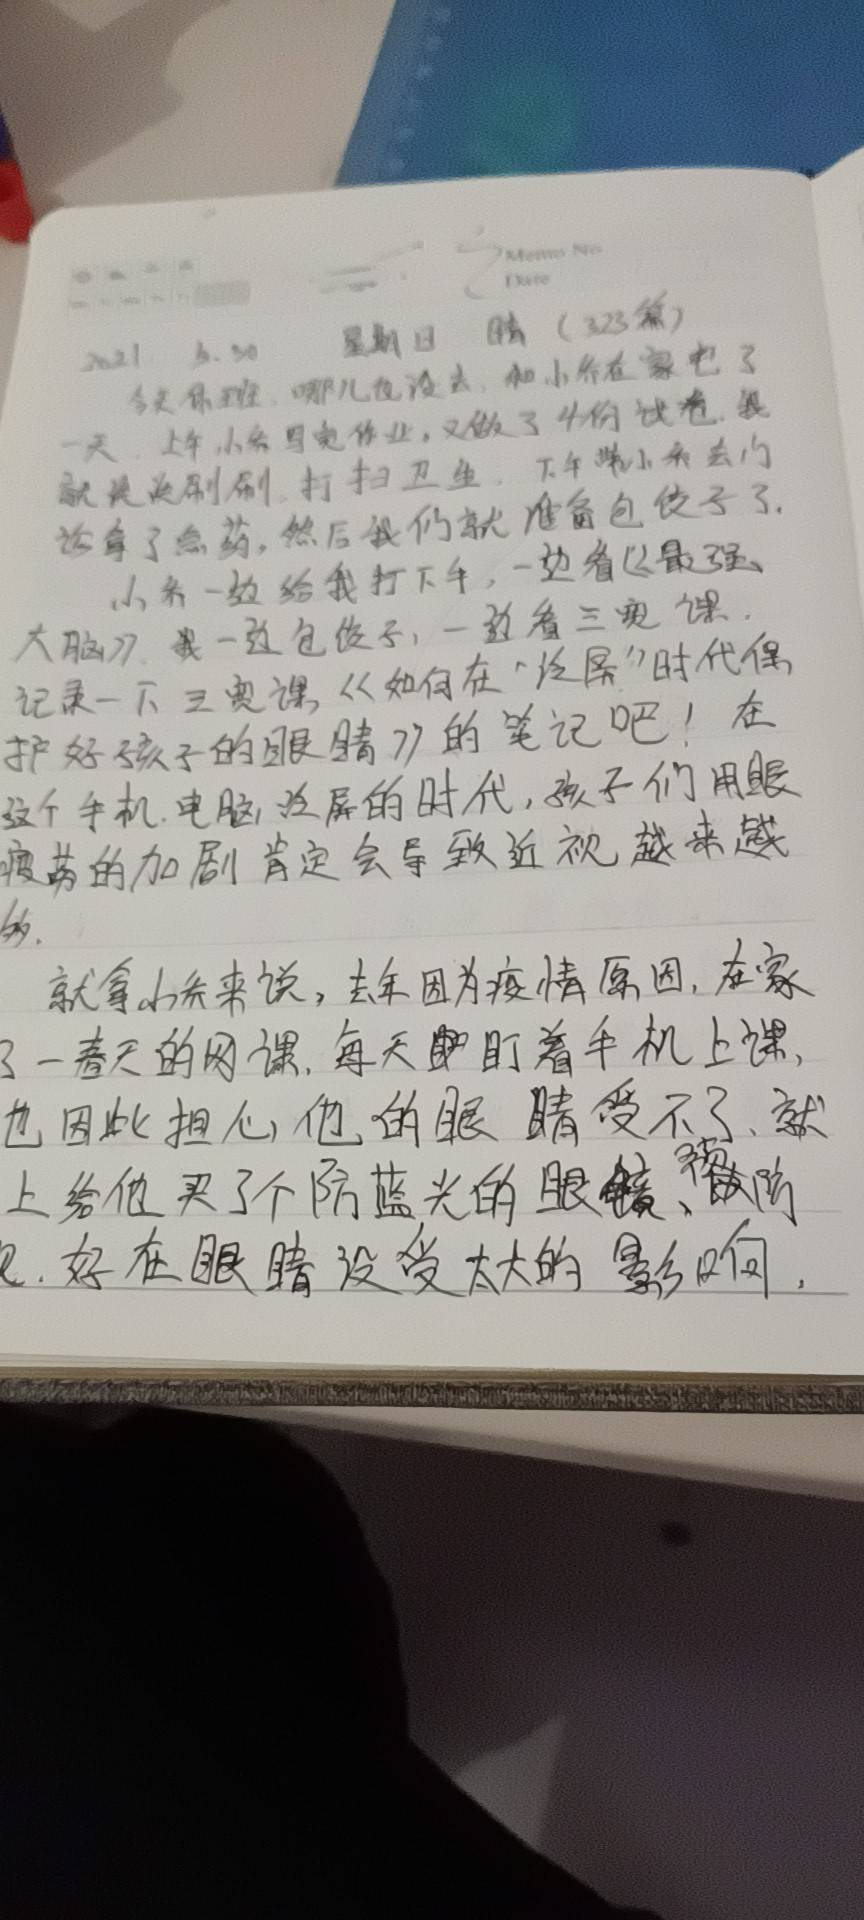 Memo No
Date
2021 5.30 星期日 晴 (323篇)
今天休班,哪儿也没去,和小乔在家宅了
一天.上午小乔写完作业,又做了4份试卷.我
就是洗刷刷,打扫卫生.下午带小乔去门
诊拿了点药,然后我们就准备包饺子了.
小乔一边给我打下手,一边看《最强
大脑》.我一边包饺子,一边看三宽课.
记录一下三宽课《如何在“泛屏”时代保
护好孩子的眼睛》的笔记吧!在
这个手机.电脑泛屏的时代,孩子们用眼
疲劳的加剧肯定会导致近视越来越
多.
就拿小乔来说,去年因为疫情原因,在家
了一春天的网课,每天盯着手机上课,
也因此担心他的眼睛受不了,就
上给他买了个防蓝光的眼镜、预防
好在眼睛没受太大的影响.